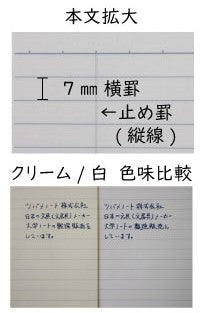 本文拡大
7㎜横罫
←止め罫
(縦線)
クリーム/白 色味比較
ツバメノート株式会社
日本の文具(文房具)メーカー
大学ノートの製造販売を
しています。
ツバメノート株式会社
日本の文具(文房具)メーカー
大学ノートの製造販売を
しています。